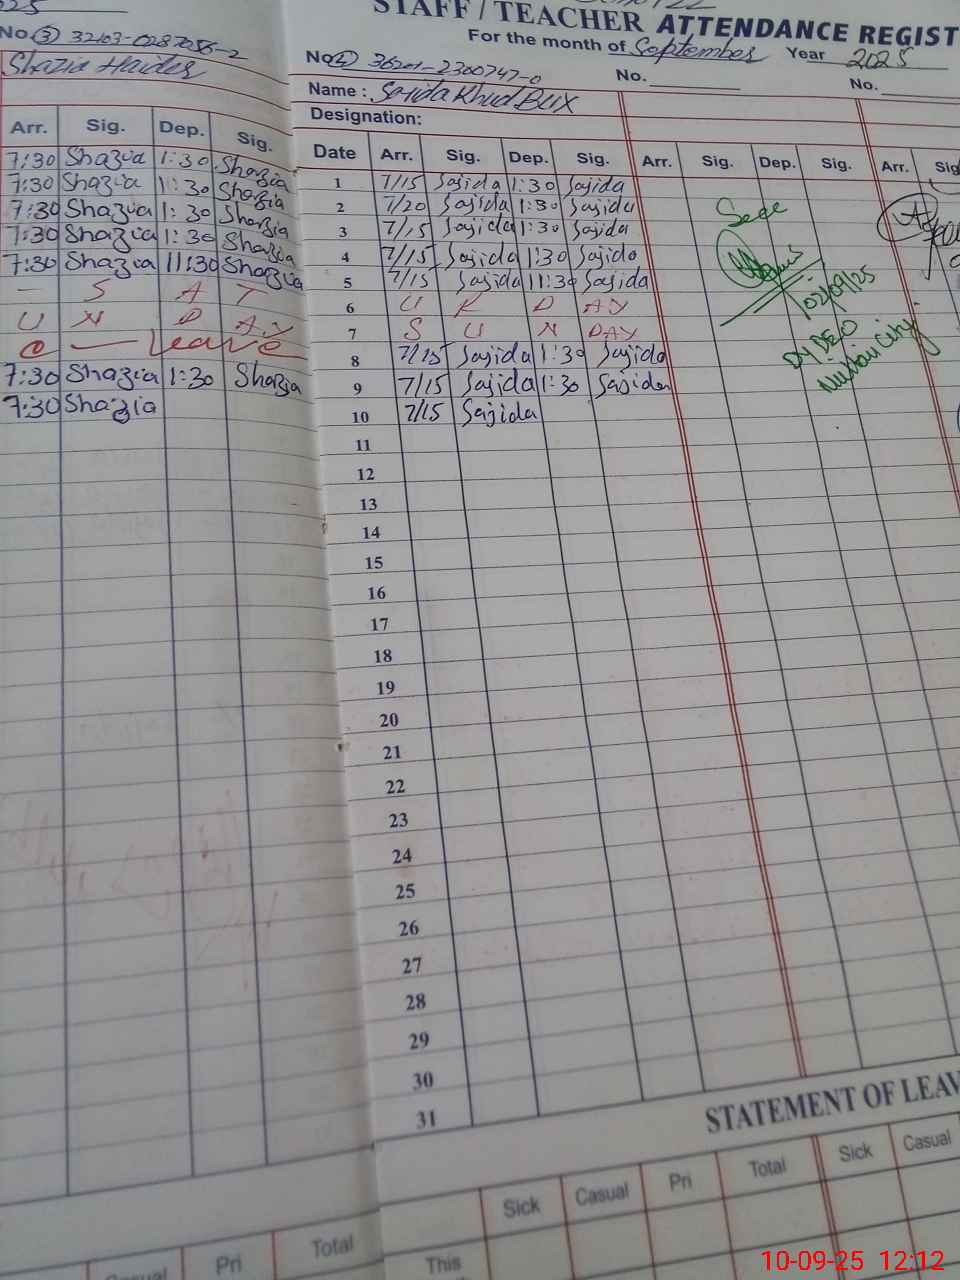 STAFF / TEACHER ATTENDANCE REGIST
For the month of September Year 2025
No. ③ 32103-0287056-2
Shazia Haider
Arr. Sig. Dep. Sig.
7:30 Shazia 1:30 Shazia
7:30 Shazia 1:30 Shazia
7:30 Shazia 1:30 Shazia
7:30 Shazia 1:30 Shazia
7:30 Shazia 11:30 Shazia
— S A T
U N D A Y
C — Leave
7:30 Shazia 1:30 Shazia
7:30 Shazia
Casual Pri Total
No. ④ 36201-2300747-0 No. No.
Name : Sajida Khud Bux
Designation:
Date Arr. Sig. Dep. Sig. Arr. Sig. Dep. Sig. Arr. Sig
1 7/15 Sajida 1:30 Sajida
2 7/20 Sajida 1:30 Sajida
3 7/15 Sajida 1:30 Sajida
4 7/15 Sajida 1:30 Sajida
5 7/15 Sajida 11:30 Sajida
6 U R D AY
7 S U N DAY
8 7/15 Sajida 1:30 Sajida
9 7/15 Sajida 1:30 Sajida
10 7/15 Sajida
11
12
13
14
15
16
17
18
19
20
21
22
23
24
25
26
27
28
29
30
31
02/09/25
DY DEO
City
STATEMENT OF LEAV
Sick Casual Pri Total Sick Casual
This
10-09-25 12:12